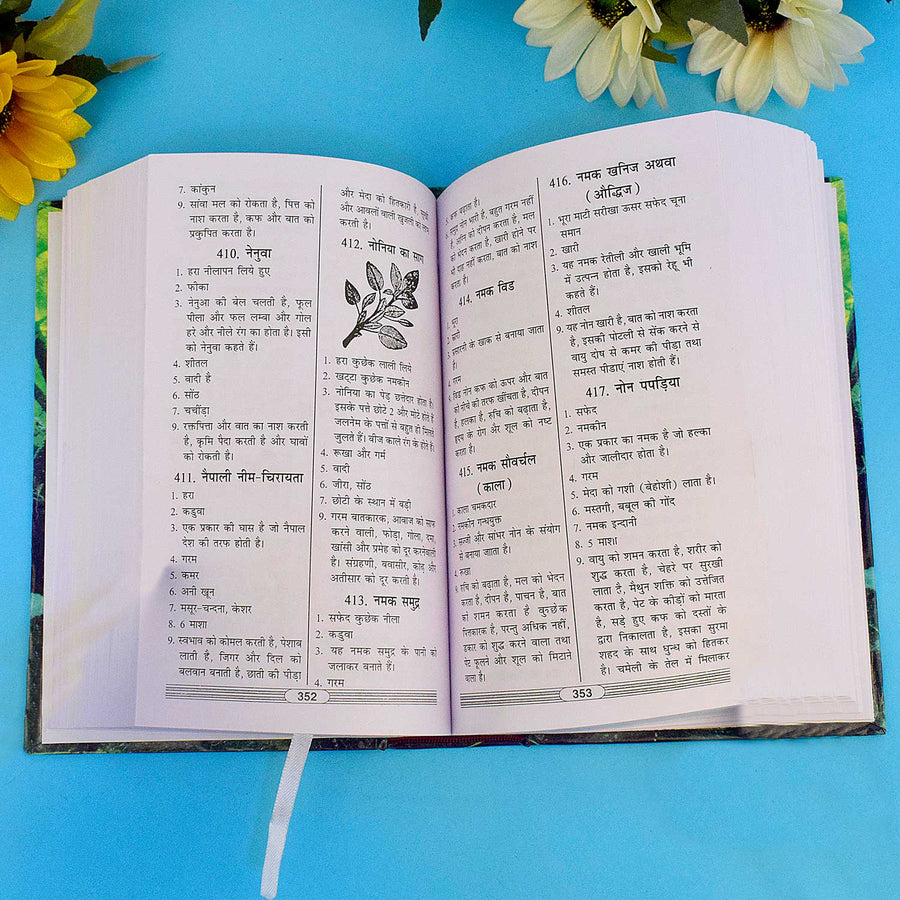 7. कांकुन
9. सांवा मल को रोकता है, पित्त को
नाश करता है, कफ और बात को
प्रकुपित करता है।
410. नेनुवा
1. हरा नीलापन लिये हुए
2. फीका
3. नेनुआ की बेल चलती है, फूल
पीला और फल लम्बा और गोल
हरे और नीले रंग का होता है। इसी
को नेनुवा कहते हैं।
4. शीतल
5. वादी है
6. सोंठ
7. चचींड़ा
9. रक्तपित्ता और वात का नाश करती
है, कृमि पैदा करती है और घावों
को रोकती है।
411. नैपाली नीम-चिरायता
1. हरा
2. कडुवा
3. एक प्रकार की घास है जो नैपाल
देश की तरफ होती है।
4. गरम
5. कमर
6. अनी खून
7. मसूर-चन्दना, केशर
8. 6 माशा
9. स्वभाव को कोमल करती है, पेशाब
लाती है, जिगर और दिल को
बलवान बनाती है, छाती की पीड़ा
और मेदा को हितकारी है,
और आवलों वाली खुजली को लाभ
करती है।
412. नोनिया का साग
1. हरा कुछेक लाली लिये
2. खट्टा कुछेक नमकीन
3. नोनिया का पेड़ छत्तेदार होता है।
इसके पत्ते छोटे 2 और मोटे होते हैं
जलनेम के पत्तों से बहुत ही मिलते
जुलते हैं। बीज काले रंग के होते हैं।
4. रूखा और गर्म
5. वादी
6. जीरा, सोंठ
7. छोटी के स्थान में बड़ी
9. गरम बातकारक, आवाज को साफ
करने वाली, फोड़ा, गोला, दमा,
खांसी और प्रमेह को दूर करनेवाली
है। संग्रहणी, बवासीर, कोढ़ और
अतीसार को दूर करती है।
413. नमक समुद्र
1. सफेद कुछेक नीला
2. कडुवा
3. यह नमक समुद्र के पानी को
जलाकर बनाते हैं।
4. गरम
352
कफ बढ़ाता है।
नोन भारी है, बहुत गरम नहीं
है, अग्नि को दीपन करता है, मल
को भेदन करता है, खारी होने पर
भी दाह नहीं करता, बात को नाश
करता है।
414. नमक विड
भूरा
खारी
के खाक से बनाया जाता
है।
गरम
विड नोन कफ को ऊपर और बात
को नीचे की तरफ खींचता है, दीपन
है, हलका है, रुचि को बढ़ाता है,
हृदय के रोग और शूल को नष्ट
करता है।
415. नमक सौवर्चल
(काला)
1. काला चमकदार
2. नमकीन गन्धयुक्त
3. सज्जी और सांभर नोन के संयोग
से बनाया जाता है।
4. रूखा
9. रुचि को बढ़ाता है, मल को भेदन
करता है, दीपन है, पाचन है, बात
को शमन करता है कुछेक
पित्तकारक है, परन्तु अधिक नहीं,
डकार को शुद्ध करने वाला तथा
पेट फूलने और शूल को मिटाने
वाला है।
416. नमक खनिज अथवा
(औद्भिज)
1. भूरा माटी सरीखा ऊसर सफेद चूना
समान
2. खारी
3. यह नमक रेतीली और खाली भूमि
में उत्पन्न होता है, इसको रेहू भी
कहते हैं।
4. शीतल
9. यह नोन खारी है, बात को नाश करता
है, इसकी पोटली से सेंक करने से
वायु दोष से कमर की पीड़ा तथा
समस्त पीडाएं नाश होती हैं।
417. नोन पपड़िया
1. सफेद
2. नमकीन
3. एक प्रकार का नमक है जो हल्का
और जालीदार होता है।
4. गरम
5. मेदा को गशी (बेहोशी) लाता है।
6. मस्तगी, बबूल की गोंद
7. नमक इन्दानी
8. 5 माशा
9. वायु को शमन करता है, शरीर को
शुद्ध करता है, चेहरे पर सुरखी
लाता है, मैथुन शक्ति को उत्तेजित
करता है, पेट के कीड़ों को मारता
है, सड़े हुए कफ को दस्तों के
द्वारा निकालता है, इसका सुरमा
शहद के साथ धुन्ध को हितकर
है। चमेली के तेल में मिलाकर
353